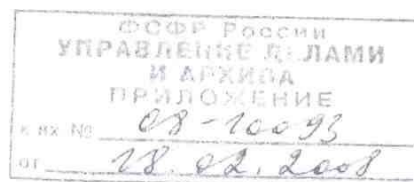 ФСФР России
УПРАВЛЕНИЕ ДЕЛАМИ
И АРХИВА
ПРИЛОЖЕНИЕ
К ВХ № 08-10093
ОТ 18.02.2008